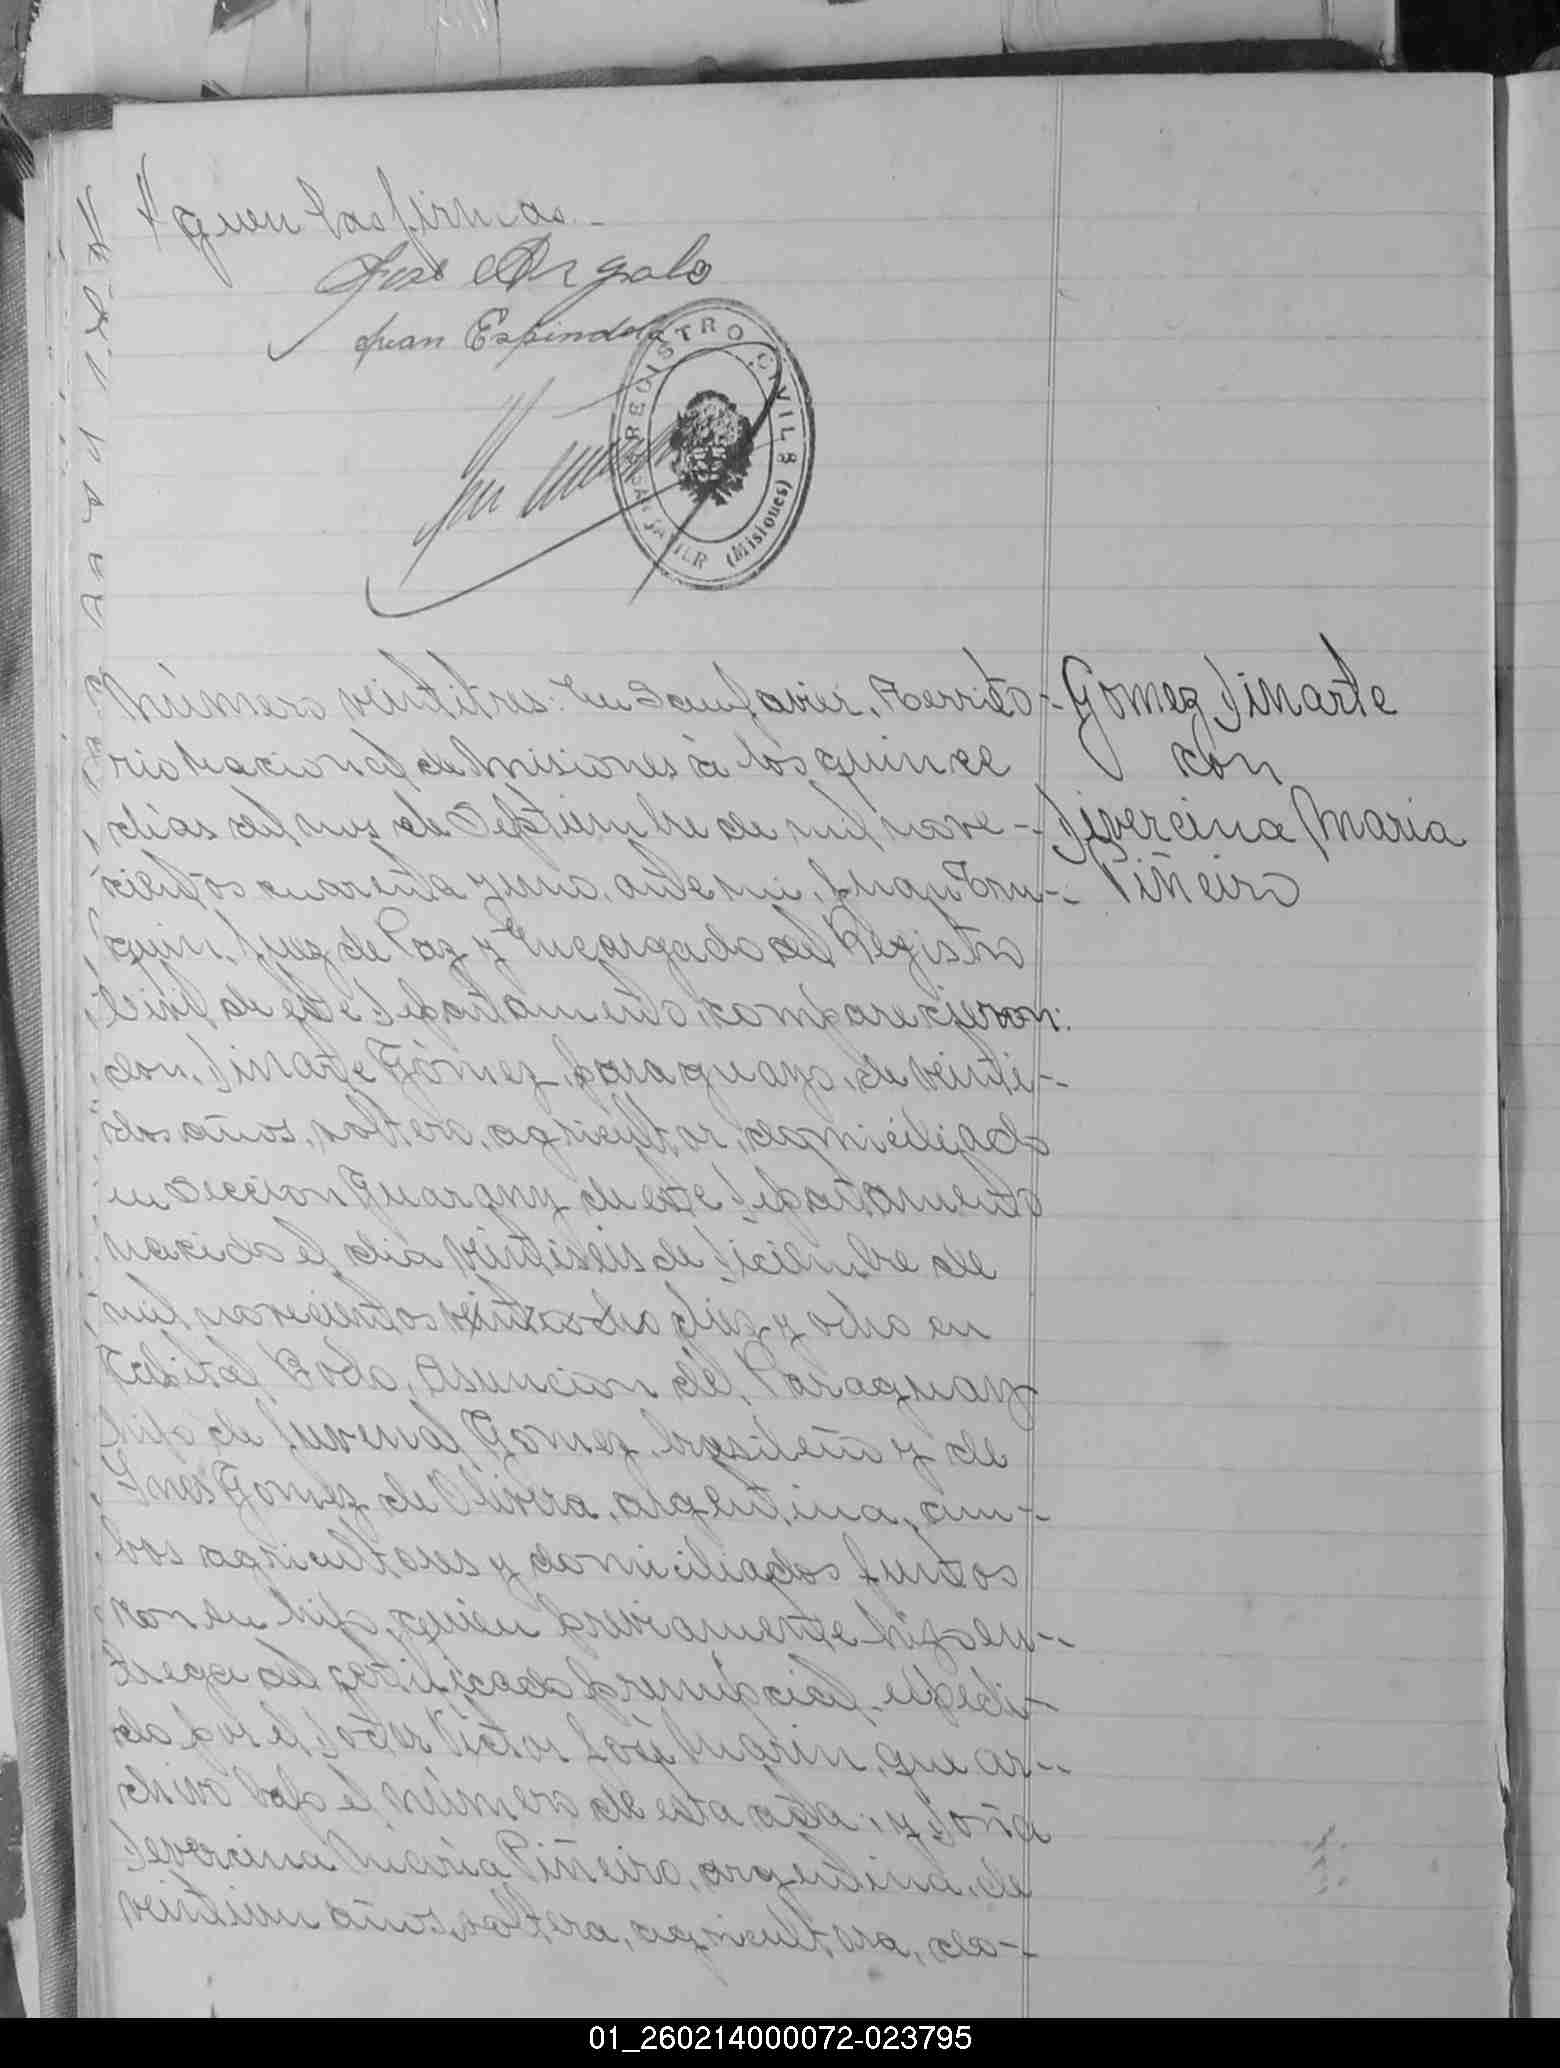 guen las firmas.-
Jose Argalo
Juan Espindola
REGISTRO CIVIL
SAN JAVIER (Misiones)
Gomez Dinarte
con
Divercina Maria
Piñeiro
Número veintitres: En San Javier, Territo-
rio Nacional de Misiones á los quince
días del mes de Septiembre de mil nove-
cientos cuarenta y uno, ante mi, Juan
Juez de Paz y Encargado del Registro
Civil de este Departamento, comparecieron:
don, Dinarte Gómez, paraguayo, de veinti-
dos años, soltero, agricultor, domiciliado
en Seccion Guarany de este Departamento
nacido el dia veintiseis de Diciembre de
mil novecientos veintiocho diez y ocho en
Asuncion del Paraguay
hijo de Juvenal Gomez, brasileño y de
Ines Gomez de Olivera, argentina, am-
bos agricultores y domiciliados juntos
con su hijo, quien previamente hizo en-
trega del certificado prenupcial expedi-
do por el Doctor Victor José Marin, que ar-
chivo bajo el número de esta acta; y Doña
Devercina Maria Piñeiro, argentina, de
veintiun años, soltera, agricultora, do-
01_260214000072-023795